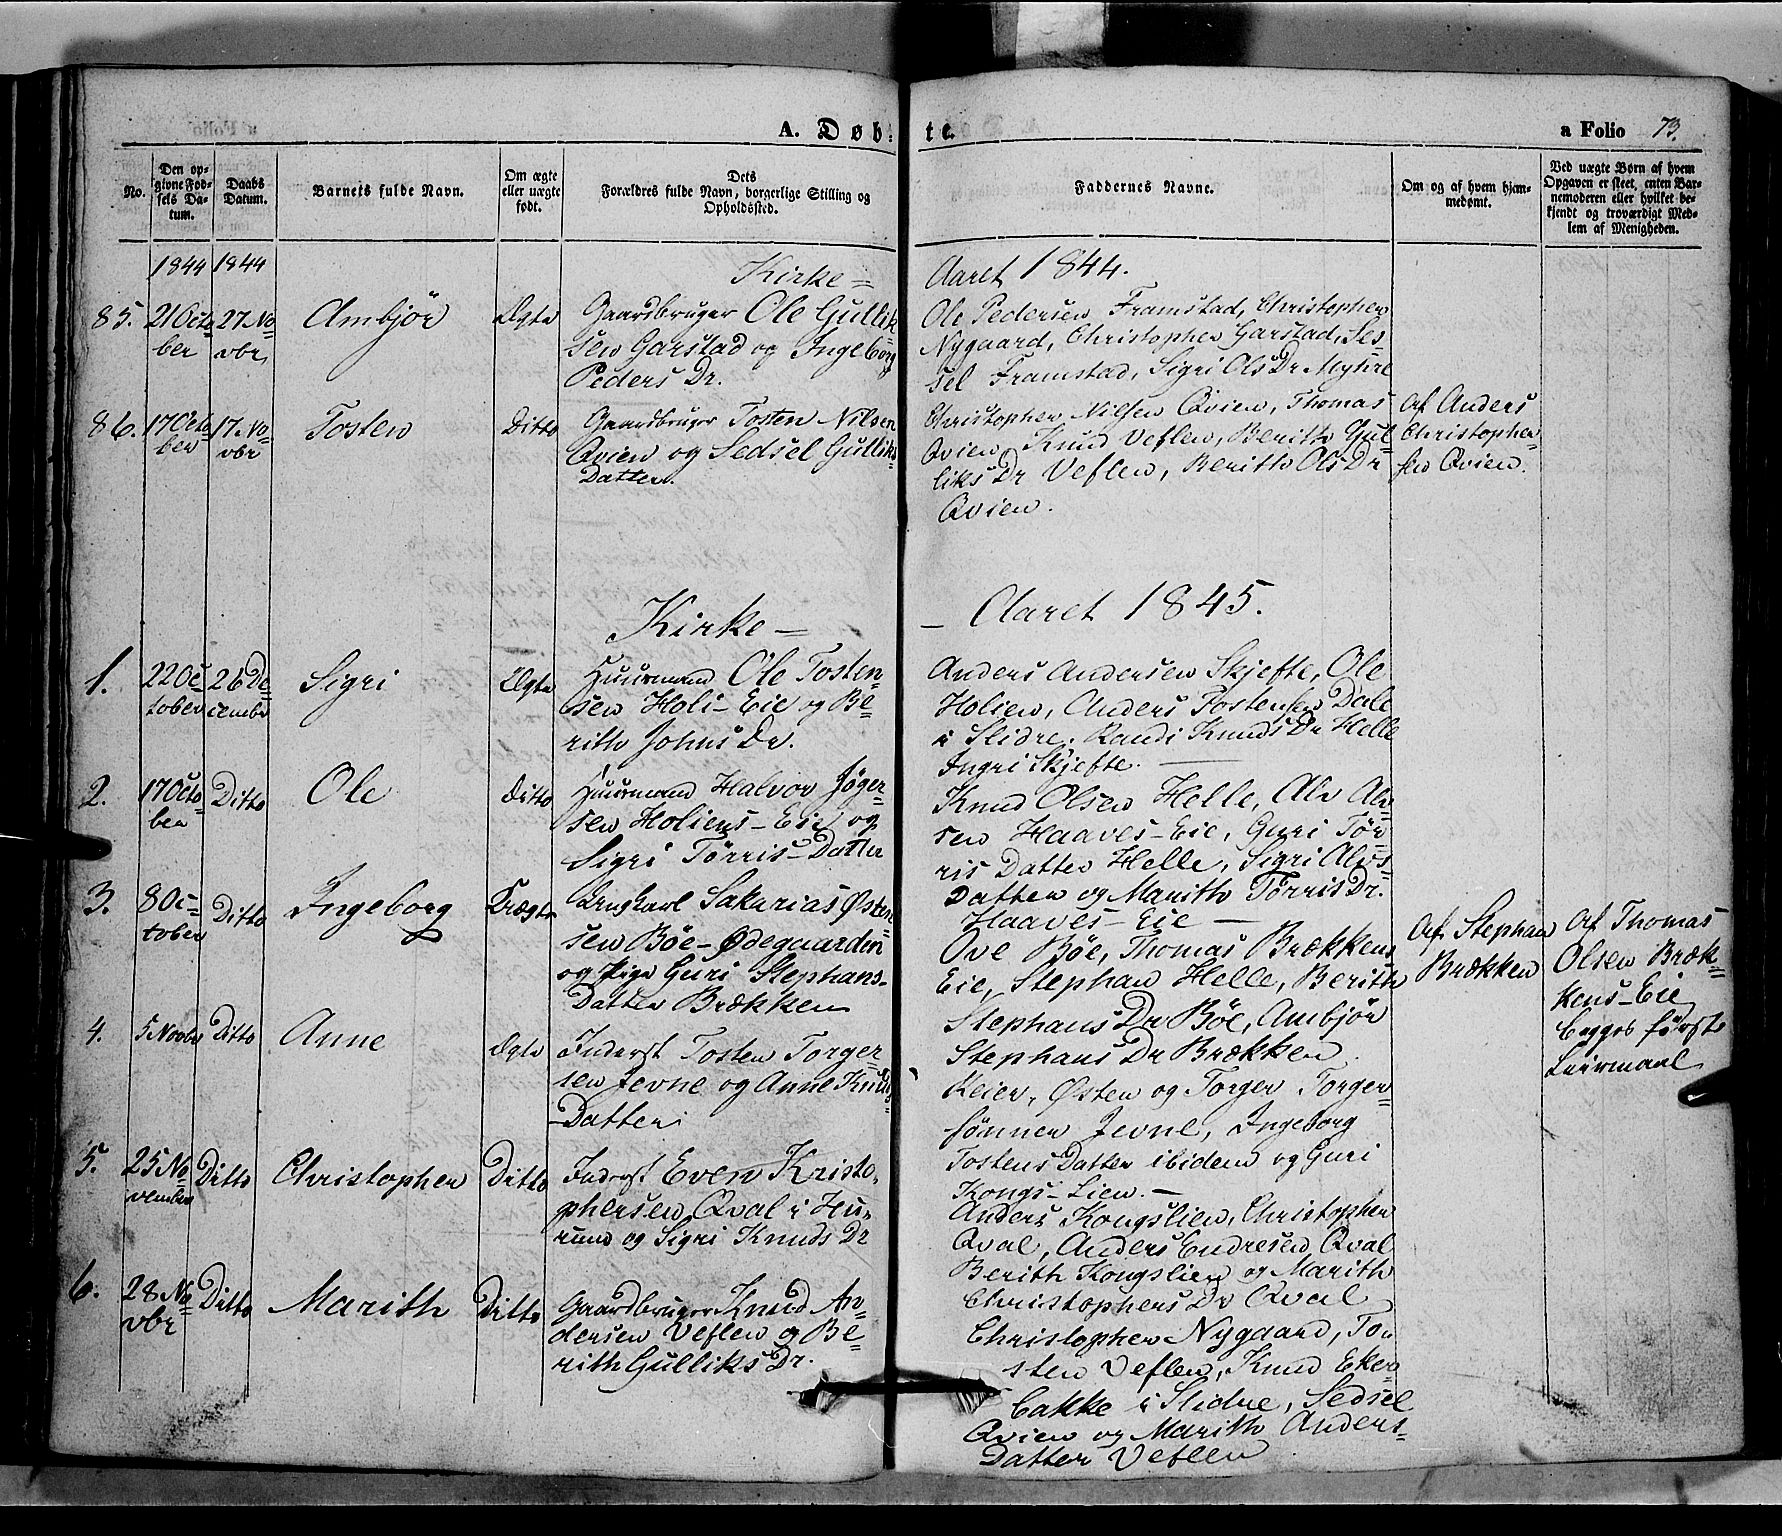 A. Døbte.
a Folio 73.
No.
Den opgivne Fødsels Datum.
Daabs Datum.
Barnets fulde Navn.
Om ægte eller uægte født.
Dets Forældres fulde Navn, borgerlige Stilling og Opholdssted.
Faddernes Navne.
Om og af hvem hjemmedømt.
Ved uægte Børn af hvem Opgaven er skeet, enten Barnemoderen eller hvilket bekjendt og troværdigt Medlem af Menigheden.
1844 1844 Kirke= Aaret 1844.
85. 21 Octo= 27 No= Ambjör Ægte Gaardbruger Ole Gullik=
ber vbr. sen Garstad og Ingeborg
Peders Dr.
Ole Pedersen Framstad, Christopher
Nygaard, Christopher Garstad, Ses=
sel Framstad, Sigri Ols Dr Myhre
86. 17 Octo= 17. No= Tosten Ditto Gaardbruger Tosten Nilsen
ber vbr Qvien og Sedsel Gulliks=
Datter.
Christopher Nilsen Qvien, Thomas
Qvien, Knud Veflen, Berith Gul=
liks Dr Veflen, Berith Ols Dr
Qvien.
Af Anders
Christopher=
sen Qvien.
Kirke — — Aaret 1845.
1. 22 Oc= 26 De= Sigri Ægte Huusmand Ole Tosten=
tober cembr sen Holi-Eie og Be=
rith Johns Dr.
Anders Andersen Skjefte, Ole
Holien, Anders Tostensen Dale
i Slidre, Randi Knuds Dr Helle
Ingri Skjefte. —
2. 17 Octo= Ditto Ole Ditto Huusmand Halvor Jöger=
ber sen Holiens-Eie og
Sigri Törris-Datter
Knud Olsen Helle, Alv Alv=
sen Haaves-Eie, Guri Tör=
ris Datter Helle, Sigri Alvs=
Datter og Marith Törris Dr.
Haaves-Eie —
3. 8 Oc= Ditto Ingeborg Uægte Ungkarl Sakarias Østen=
tober sen Böe-Ødegaarden
og Pige Guri Stephans=
Datter Brækken
Ove Böe, Thomas Brækkens
Eie, Stephan Helle, Berith
Stephans Dr Böe, Ambjör
Stephans Dr Brækken
Af Stephan
Brækken
Af Thomas
Olsen Bræk=
kens-Eie
begges förste
Leiermaal
4. 5 Novbr Ditto Anne Ægte Inderst Tosten Torger=
sen Jevne og Anne Knuds=
Datter
Reier, Østen og Torger Torger=
sönner Jevne, Ingeborg
Tostens Datter ibidem og Guri
Kongs-Lien. —
5. 25 No= Ditto Christopher Ditto Inderst Even Kristo=
vember phersen Qval i Hu=
rum og Sigri Knuds Dr
Anders Kongslien, Christopher
Qval, Anders Endresen Qval
Berith Kongslien og Marith
Christophers Dr Qval
6. 28 No= Ditto Marith Ditto Gaardbruger Knud An=
vbr dersen Veflen og Be=
rith Gulliks Dr.
Christopher Nygaard, To=
sten Veflen, Knud Eker=
bakke i Slidre, Sedsel
Qvien og Marith Anders=
Datter Veflen